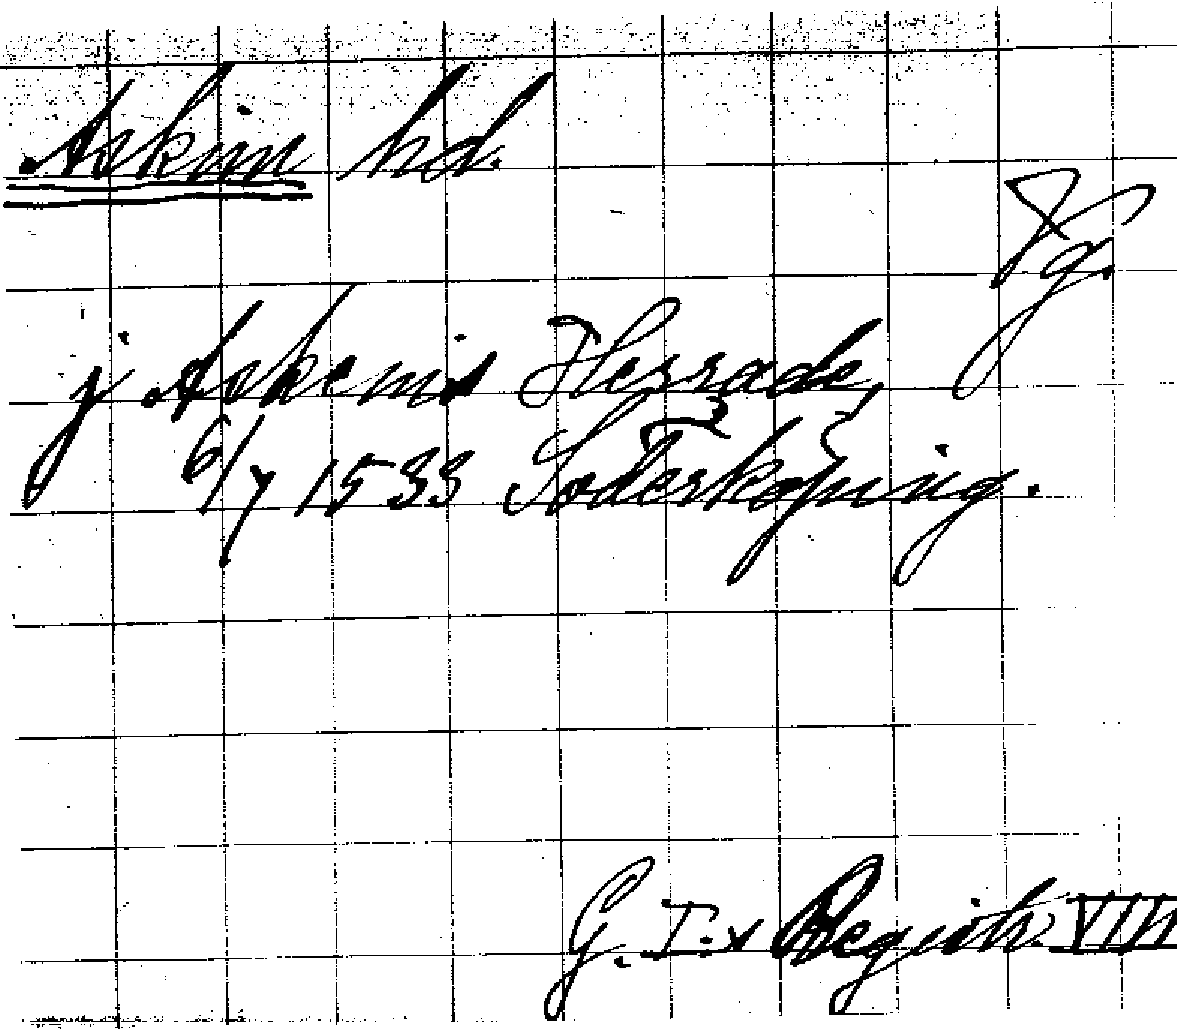 Askim hd.
Vg.
j Askems Herrade,
6/7 1533 Söderköping.
G. I:s Registr. VIII